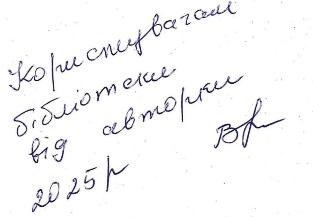 Користувачам
бібліотеки
від авторки
2025р